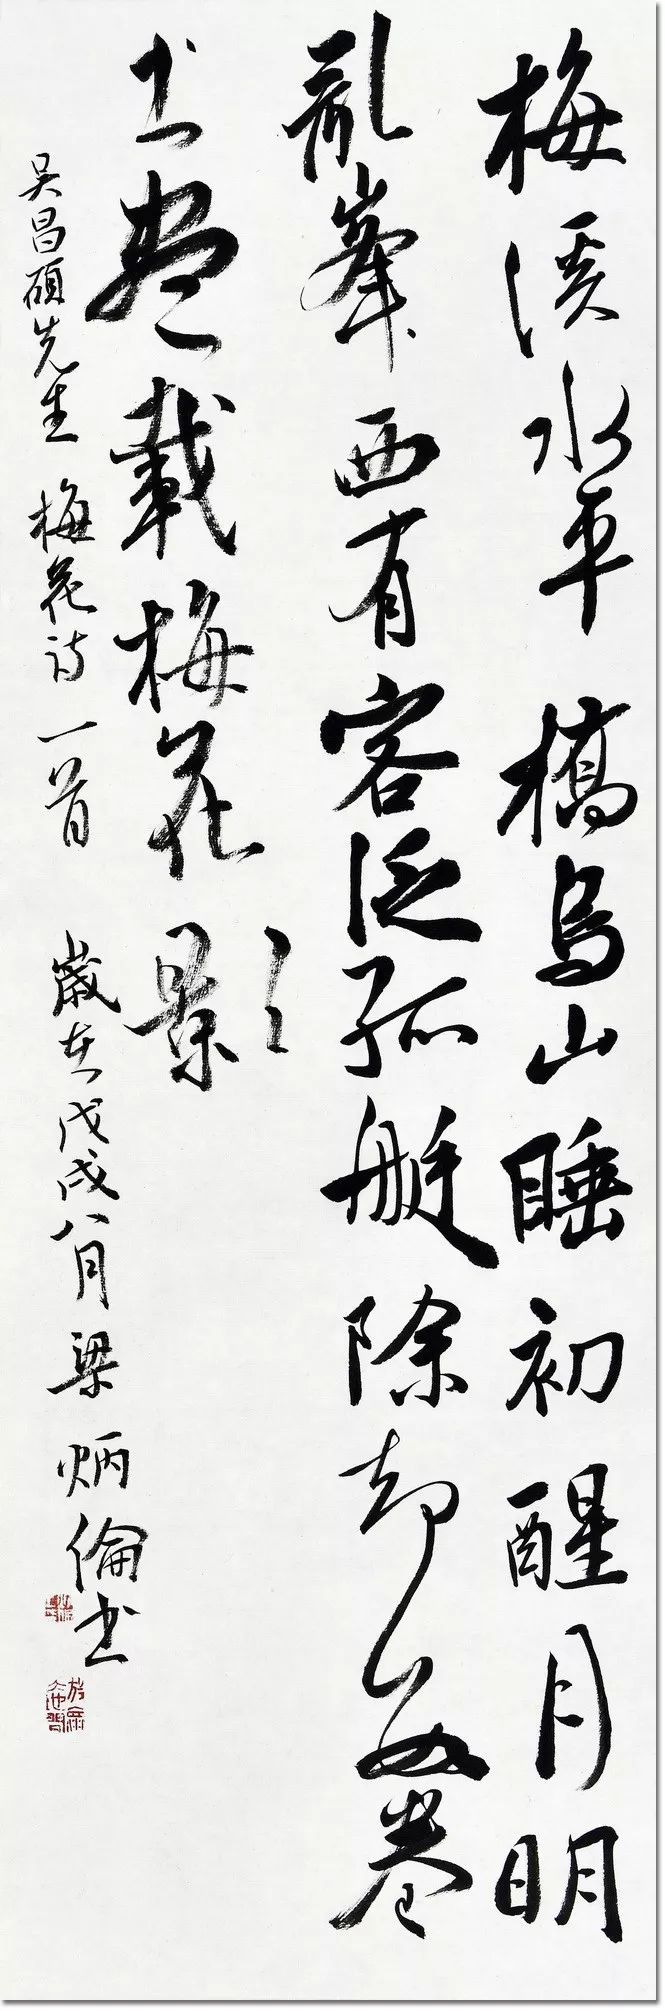 梅溪水平橋烏山睡初醒月明
亂峯西有客泛孤艇除却數卷
書盡載梅花影
吳昌碩先生梅花詩一首 歲在戊戌八月梁炳倫書